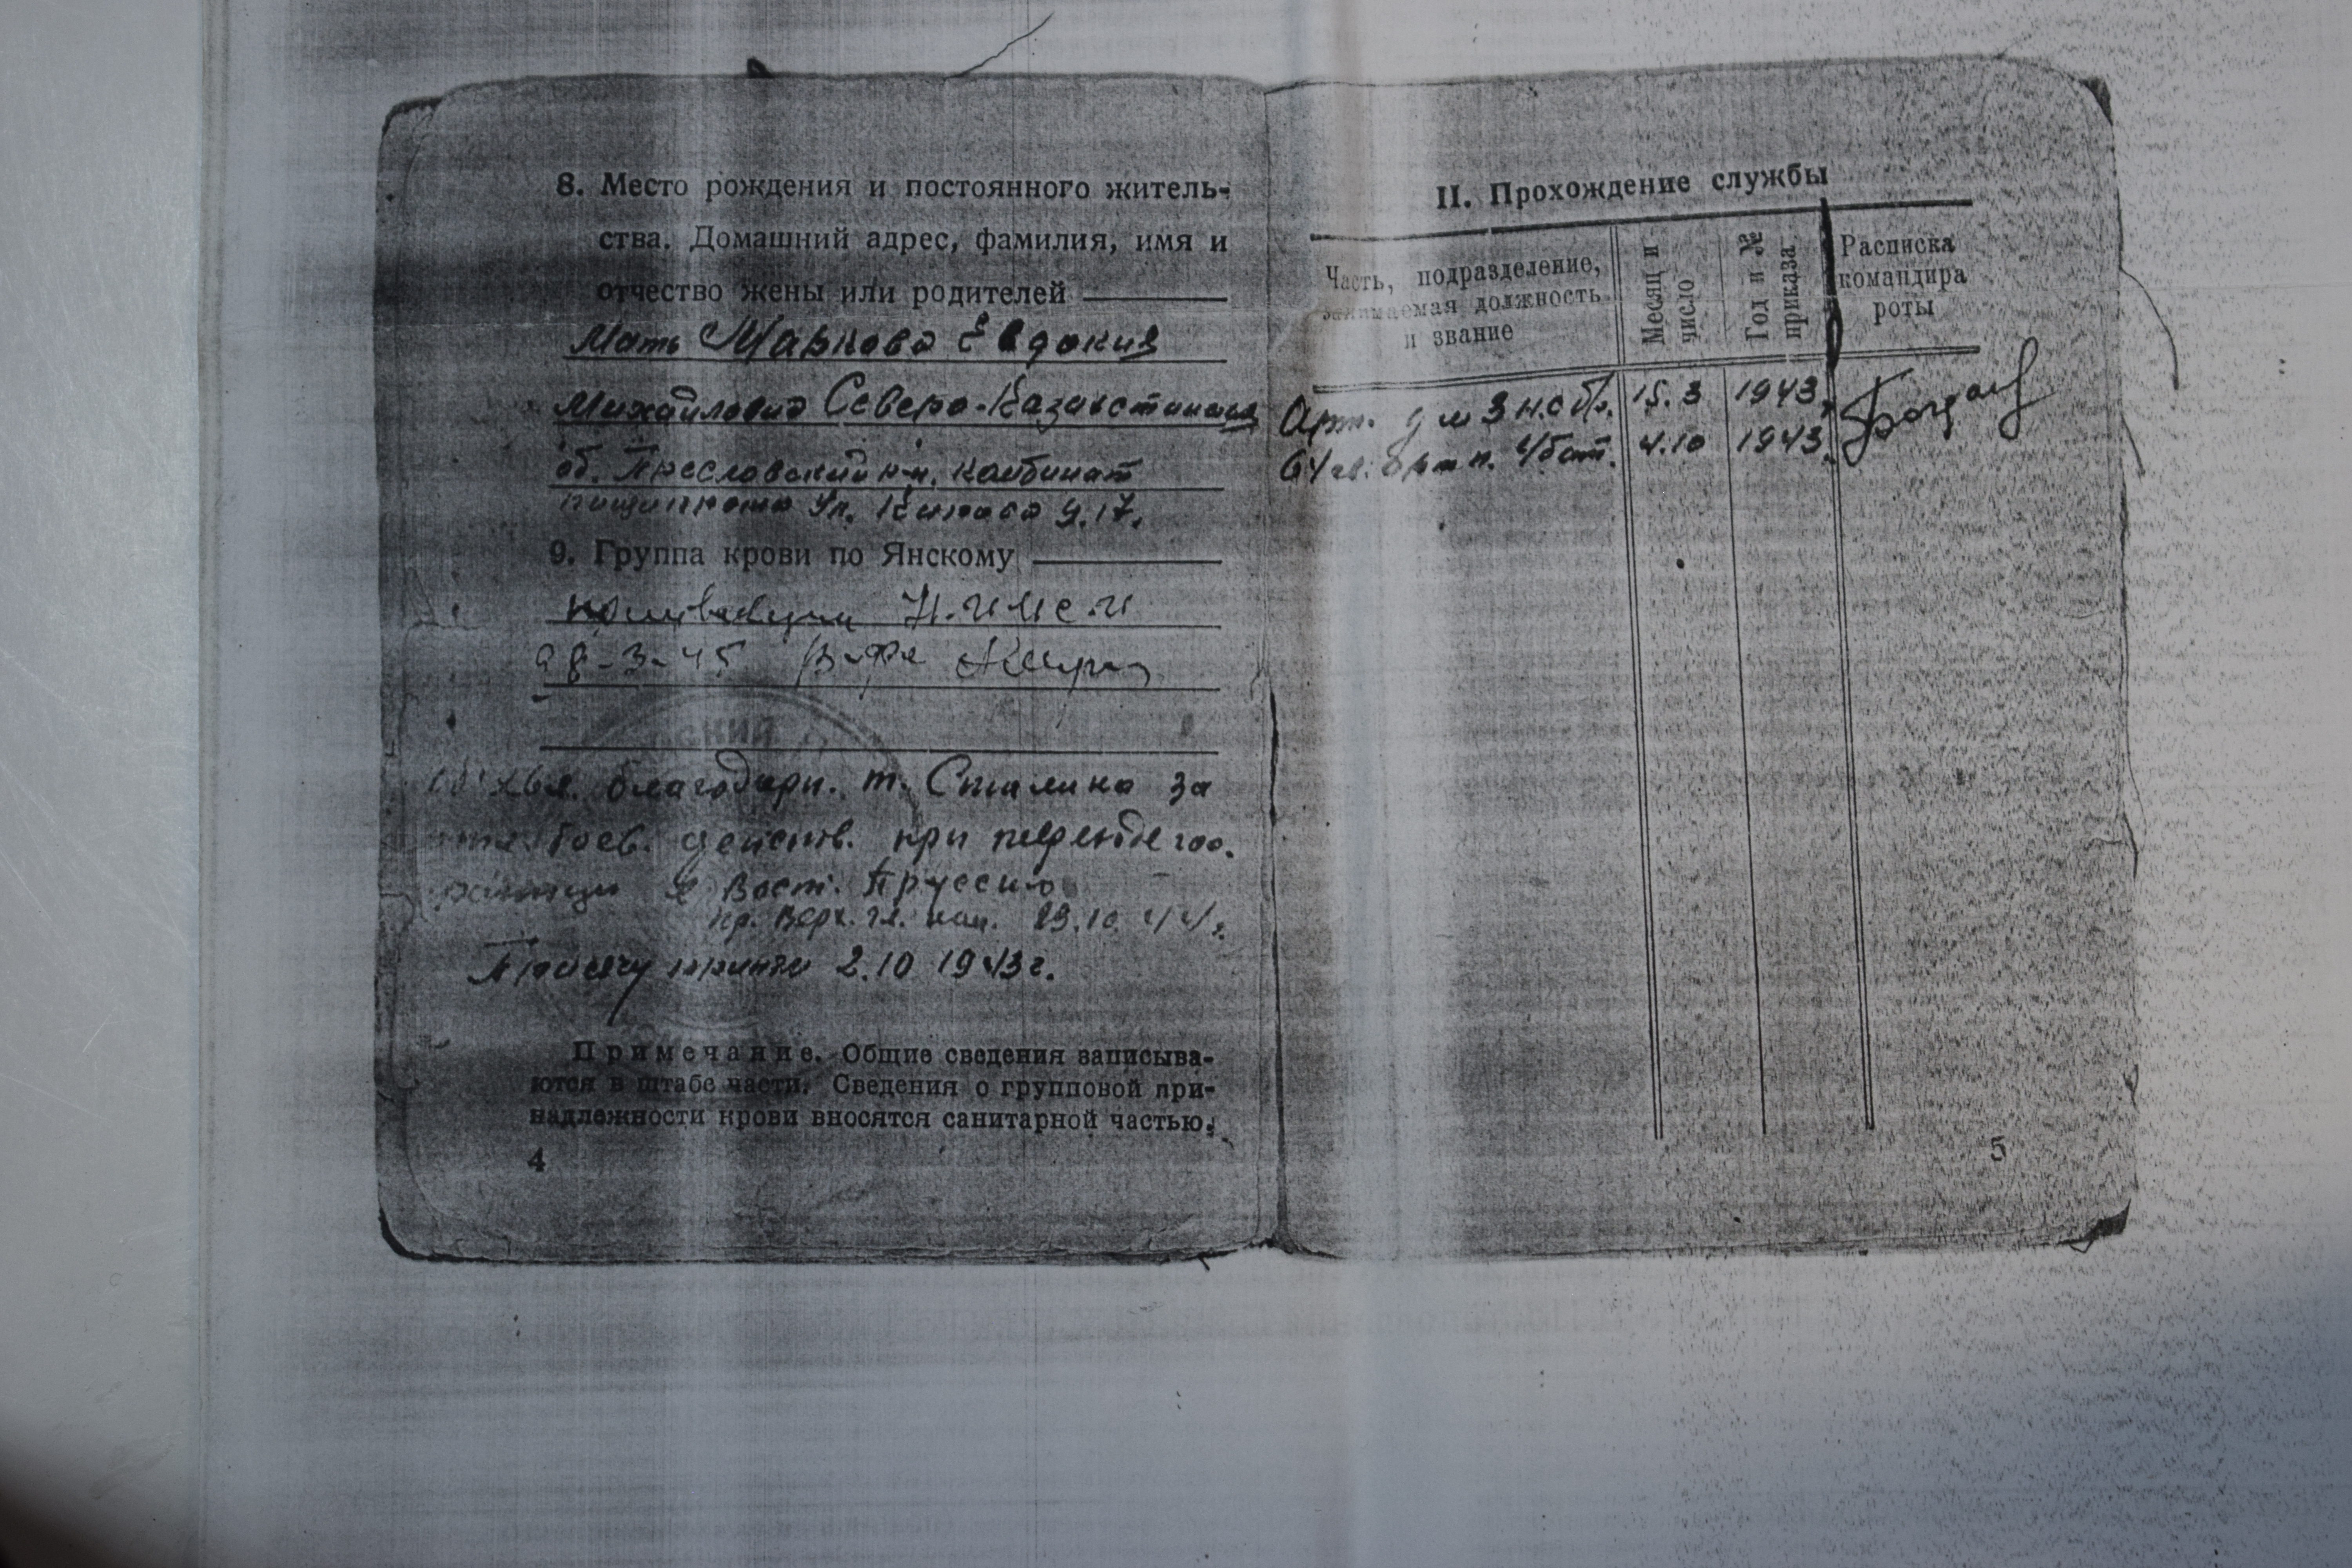 8. Место рождения и постоянного житель-
ства. Домашний адрес, фамилия, имя и
отчество жены или родителей
Мать Маркова Евдокия
Михайловна Северо-Казахстанская
об. Пресновский р-н, комбинат
ул. Кирова д. 17.
9. Группа крови по Янскому
28-3-45
ский
благодарн. т. Сталина за
боев. действ. при переходе гос.
границы с Вост. Пруссию
пр. Верх. гл. ком. 23.10.44 г.
Присягу принял 2.10 1943 г.
Примечание. Общие сведения записыва-
ются в штабе части. Сведения о групповой при-
надлежности крови вносятся санитарной частью.
4
II. Прохождение службы
Часть, подразделение,
занимаемая должность
и звание
Месяц и
число
Год и №
приказа
Расписка
командира
роты
15.3 1943
64 гв. арт п. 4 бат. 4.10 1943
5